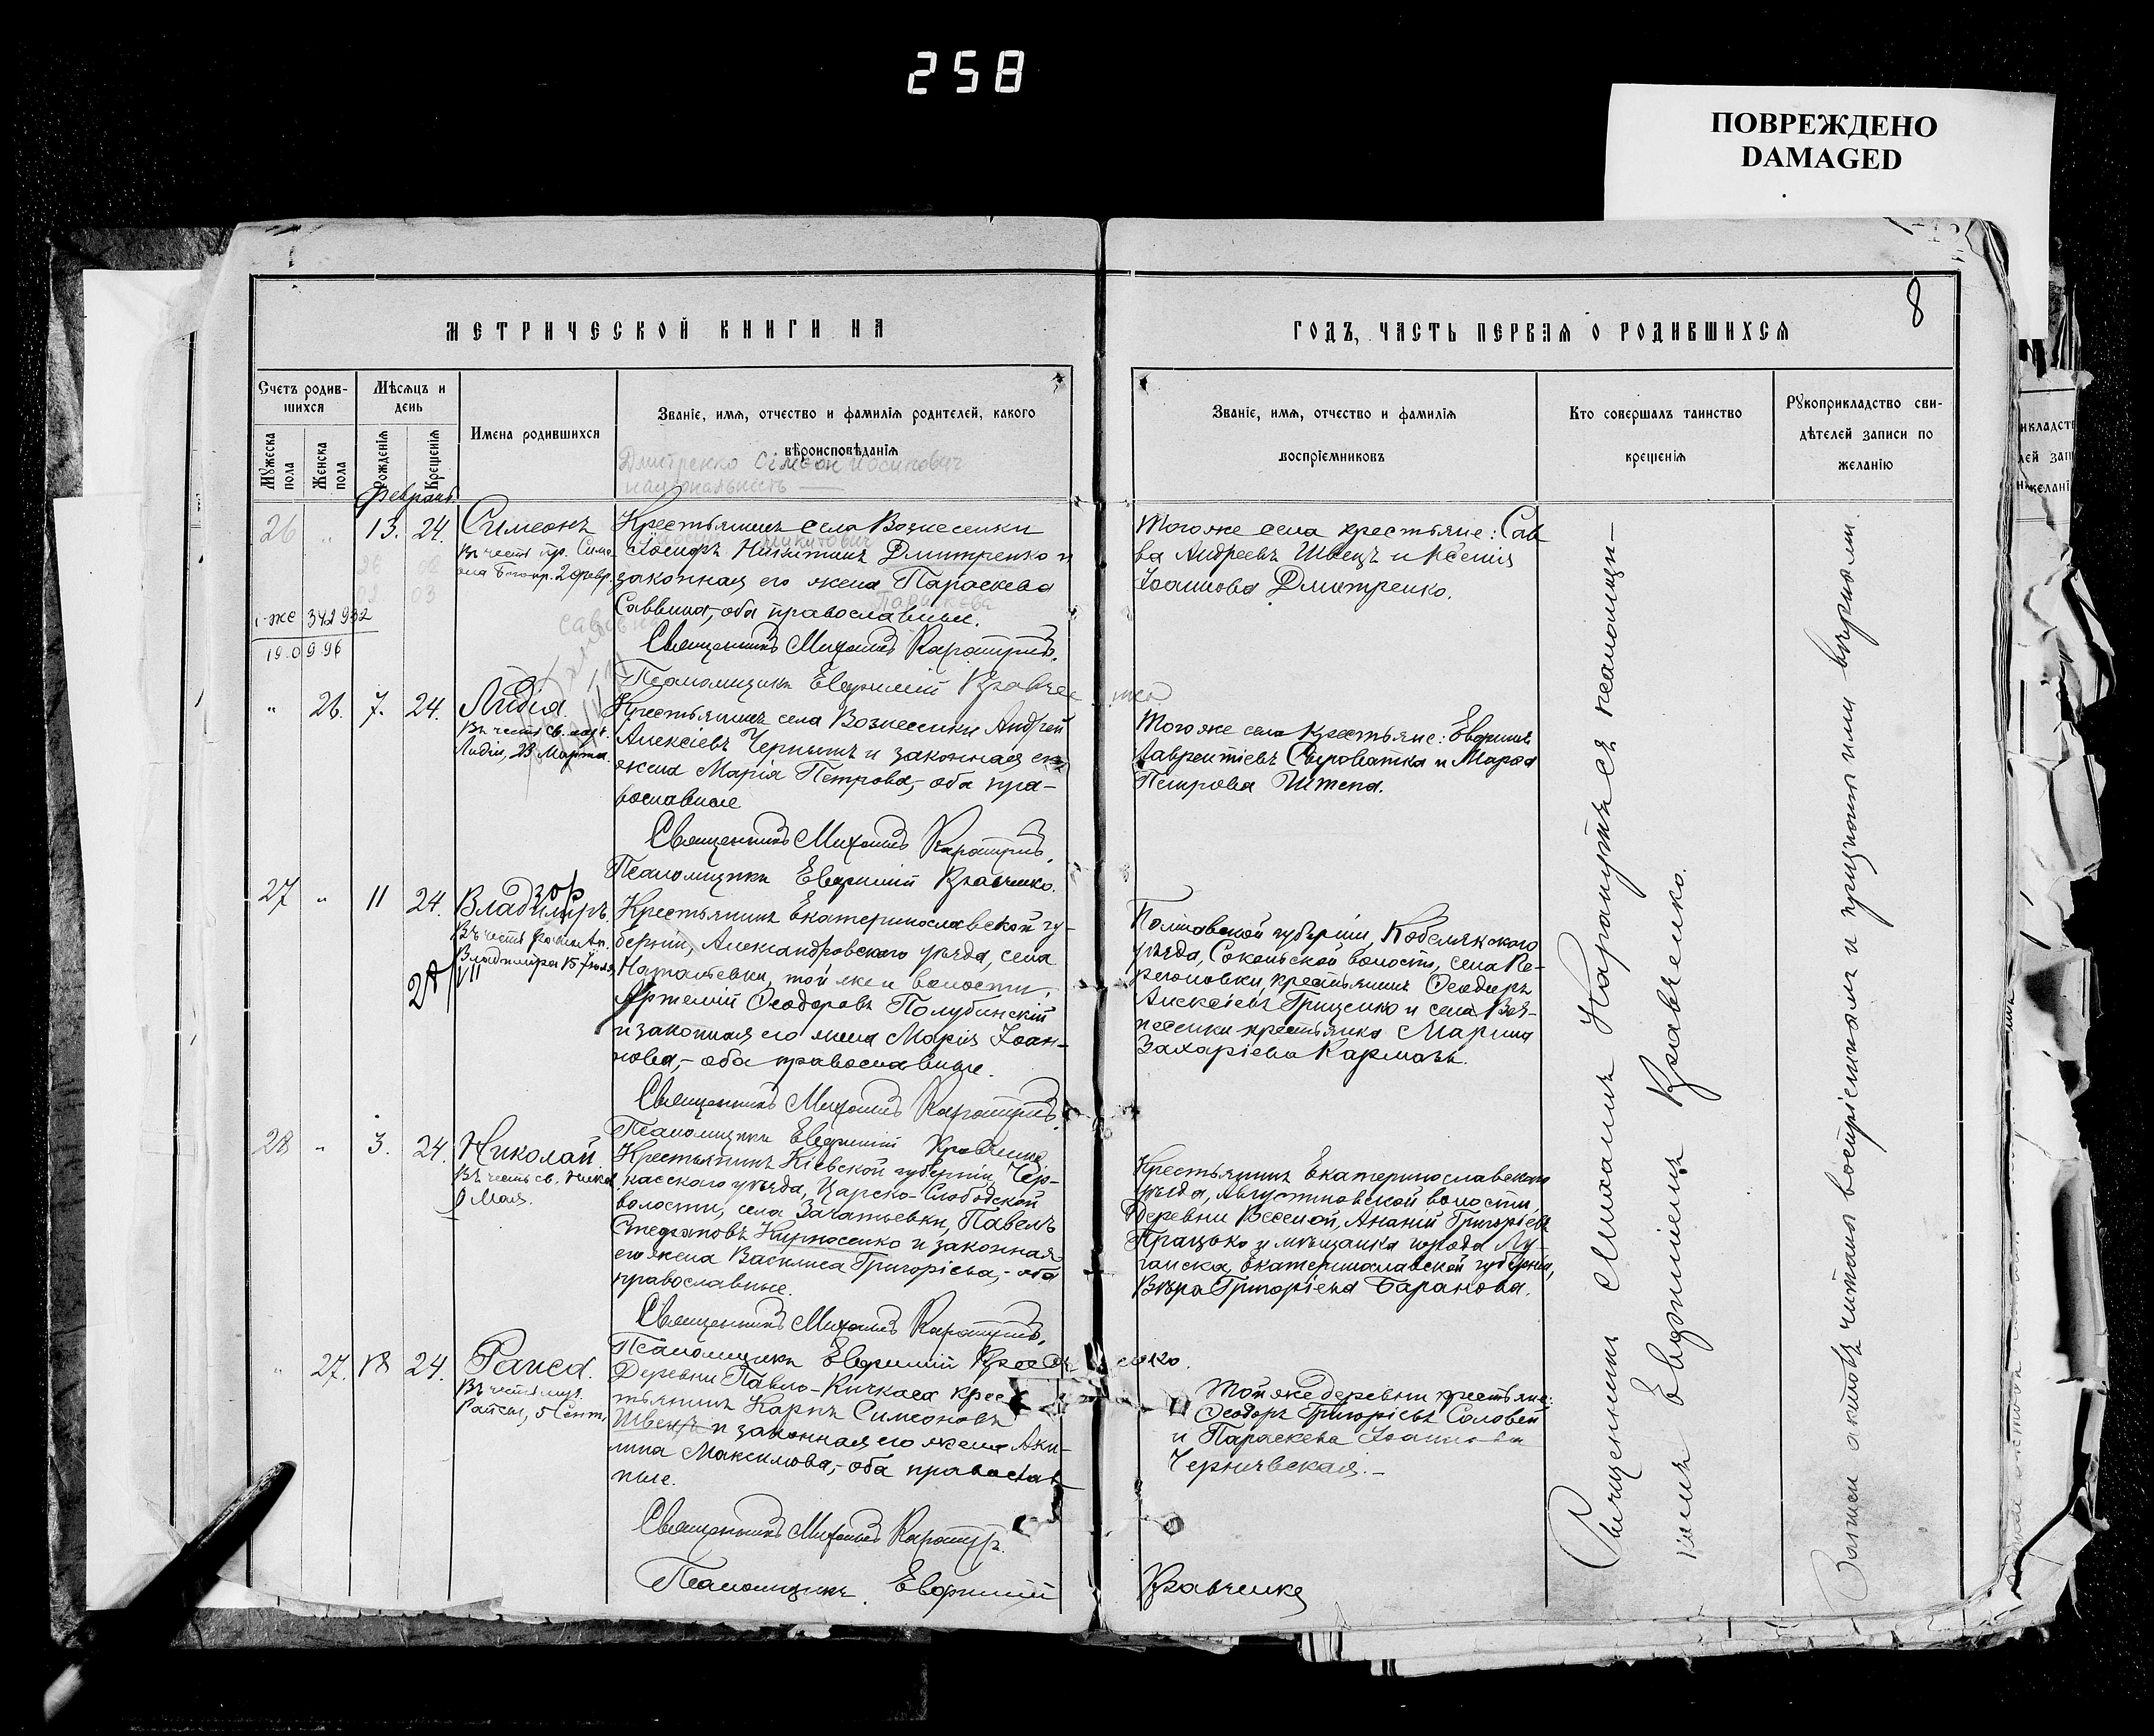 258
ПОВРЕЖДЕНО
DAMAGED
8
МЕТРИЧЕСКОЙ КНИГИ НА
ГОДЪ, ЧАСТЬ ПЕРВАЯ О РОДИВШИХСЯ
Счетъ родив-
шихся
Мѣсяцъ и
день
Мужеска
пола
Женска
пола
Рожденія
Крещенія
Имена родившихся
Званіе, имя, отчество и фамилія родителей, какого
вѣроисповѣданія
Званіе, имя, отчество и фамилія
воспріемниковъ
Кто совершалъ таинство
крещенія
Рукоприкладство сви-
дѣтелей записи по
желанію
Дмитренко Сімеон Йосипович
національність —
Февраль
26 " 13. 24. Симеонъ
Въ честь пр. Симе-
она Богопр. 2 февр.
І-ЖС 342932
19.09.96
Крестьянинъ села Вознесенки
Іосифъ Никитинъ Дмитренко и
законная его жена Параскева
Саввина,- оба православные.
Священникъ Михаилъ Карапутъ.
Псаломщикъ Евфимій Кравченко
Того же села крестьяне: Сав
ва Андреевъ Швецъ и Ксенія
Іоаннова Дмитренко.
" 26. 7. 24. Лидія.
Въ честь св. муч.
Лидіи, 23 Марта.
Крестьянинъ села Вознесенки Андрей
Алексіевъ Чернышъ и законная его
жена Марія Петрова,- оба пра-
вославные
Священникъ Михаилъ Карапутъ.
Псаломщикъ Евфимій Кравченко.
Того же села крестьяне: Евфимъ
Лаврентіевъ Сыроватка и Марфа
Петрова Штепа.
27 " 11 24. Владимиръ.
Въ честь равноап.
Владимира 15 Іюля
Крестьянинъ Екатеринославской гу-
берніи, Александровскаго уѣзда, села
Натальевки, той же и волости,
Артемій Ѳеодоровъ Полубинскій
и законная его жена Марія Іоан-
нова,- оба православные.
Священникъ Михаилъ Карапутъ.
Псаломщикъ Евфимій Кравченко
Полтавской губерніи, Кобелякскаго
уѣзда, Сокольской волости, села Пе-
регоновки, крестьянинъ Ѳеодоръ
Алексіевъ Гриценко и села Воз-
несенки крестьянка Марина
Захаріева Кармазь.
28 " 3. 24. Николай
Въ честь св. Никол.
9 Мая.
Крестьянинъ Кіевской губерніи, Чер-
касскаго уѣзда, Царско-Слободской
волости, села Зачатьевки, Павелъ
Стефановъ Кирносенко и законная
его жена Василиса Григоріева,- оба
православные.
Священникъ Михаилъ Карапутъ.
Псаломщикъ Евфимій Кравченко.
Крестьянинъ Екатеринославскаго
уѣзда, Августиновской волости,
деревни Веселой, Ананій Григоріевъ
Працько и мѣщанка города Лу-
ганска, Екатеринославской губерніи,
Вѣра Григоріева Баранова.
" 27. 18 24. Раиса.
Въ честь муч.
Раисы, 5 Сент.
Деревни Павло-Кичкаса крес
тьянинъ Карпъ Симеоновъ
Швецъ и законная его жена Аки-
лина Максимова,- оба православ
ные.
Священникъ Михаилъ Карапутъ.
Псаломщикъ Евфимій Кравченко
Той же деревни крестьяне:
Ѳеодоръ Григоріевъ Соловей
и Параскева Іоаннова
Черничевская.-
Священникъ Михаилъ Карапутъ съ псаломщи-
комъ Евфиміемъ Кравченко.
Записи актовъ читаны воспріемникамъ и признаны ими вѣрными.